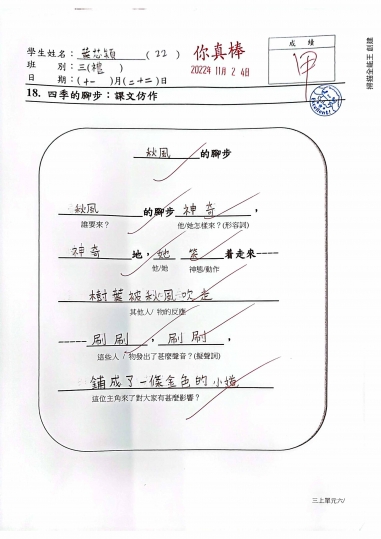 學生姓名：葉芯潁 ( 22 ) 你真棒 成績
班 別：三(禮) 2022年 11月 2 4日 甲
日 期：(十一)月(二十二)日
18. 四季的腳步：課文仿作
秋風 的腳步
秋風 的腳步 神奇，
誰要來？ 他/她怎樣來？(形容詞)
神奇 地，她 笑 着走來----
他/她 神態/動作
樹葉被秋風吹走
其他人/ 物的反應
-----刷刷，刷刷，
這些人/物發出了甚麼聲音？(擬聲詞)
鋪成了一條金色的小道
這位主角來了對大家有甚麼影響？
三上單元六/
掃描全能王 創建